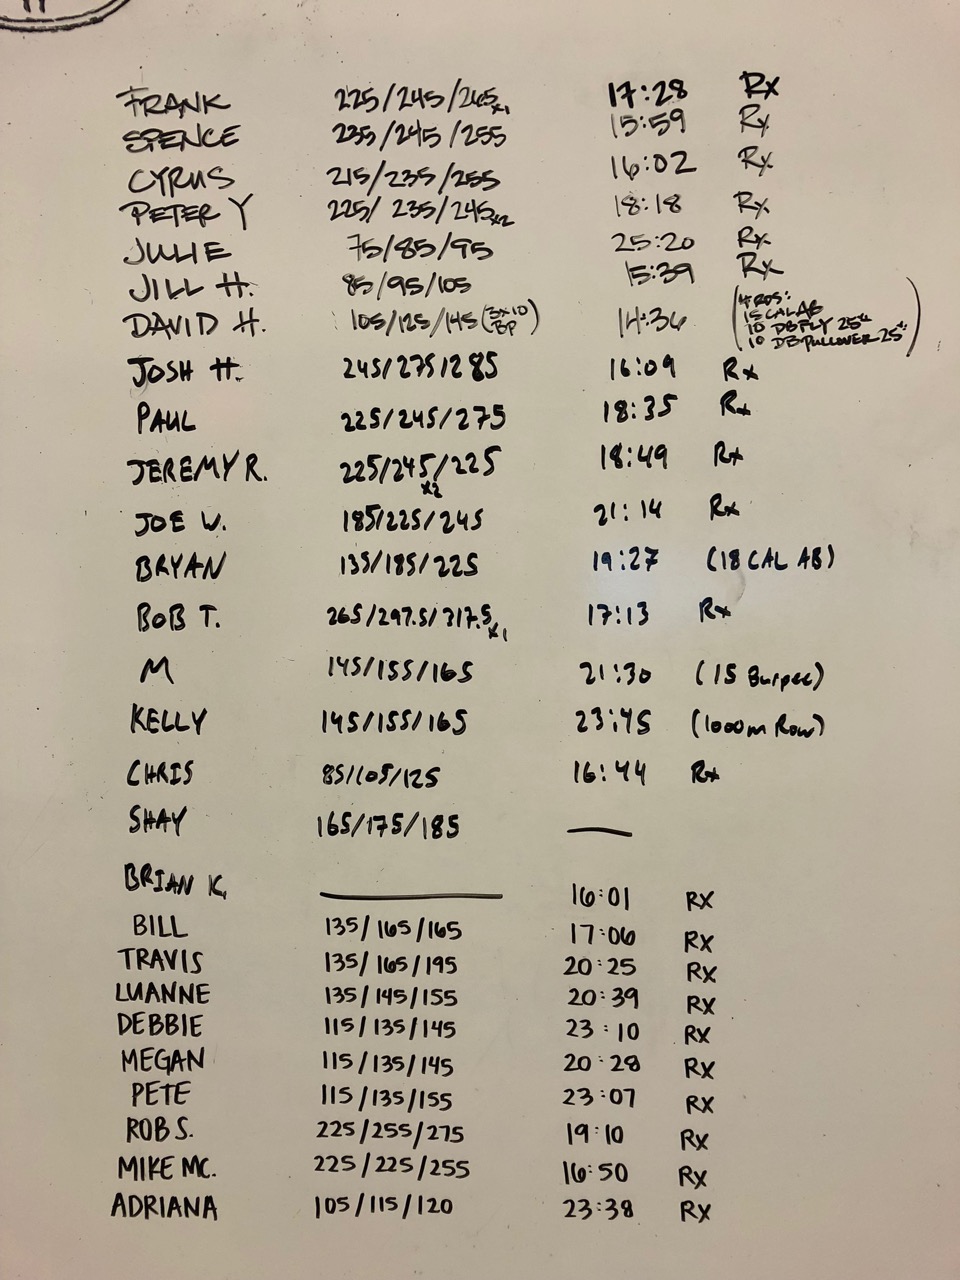 FRANK 225/245/265x1 17:28 Rx
SPENCE 235/245/255 15:59 Rx
CYRUS 215/235/255 16:02 Rx
PETER Y 225/235/245x2 18:18 Rx
JULIE 75/85/95 25:20 Rx
JILL H. 85/95/105 15:39 Rx
DAVID H. 105/125/145 (3x10 BP) 14:36 (4 RDS:
15 CAL AB
10 DB FLY 25#
10 DB PULLOVER 25#)
JOSH H. 245/275/285 16:09 Rx
PAUL 225/245/275 18:35 Rx
JEREMY R. 225/245x2/225 18:49 Rx
JOE W. 185/225/245 21:14 Rx
BRYAN 135/185/225 19:27 (18 CAL AB)
BOB T. 265/297.5/317.5x1 17:13 Rx
M 145/155/165 21:30 (15 Burpee)
KELLY 145/155/165 23:45 (1000m Row)
CHRIS 85/105/125 16:44 Rx
SHAY 165/175/185 —
BRIAN K. — 16:01 RX
BILL 135/165/165 17:06 RX
TRAVIS 135/165/195 20:25 RX
LUANNE 135/145/155 20:39 RX
DEBBIE 115/135/145 23:10 RX
MEGAN 115/135/145 20:28 RX
PETE 115/135/155 23:07 RX
ROB S. 225/255/275 19:10 RX
MIKE MC. 225/225/255 16:50 RX
ADRIANA 105/115/120 23:38 RX